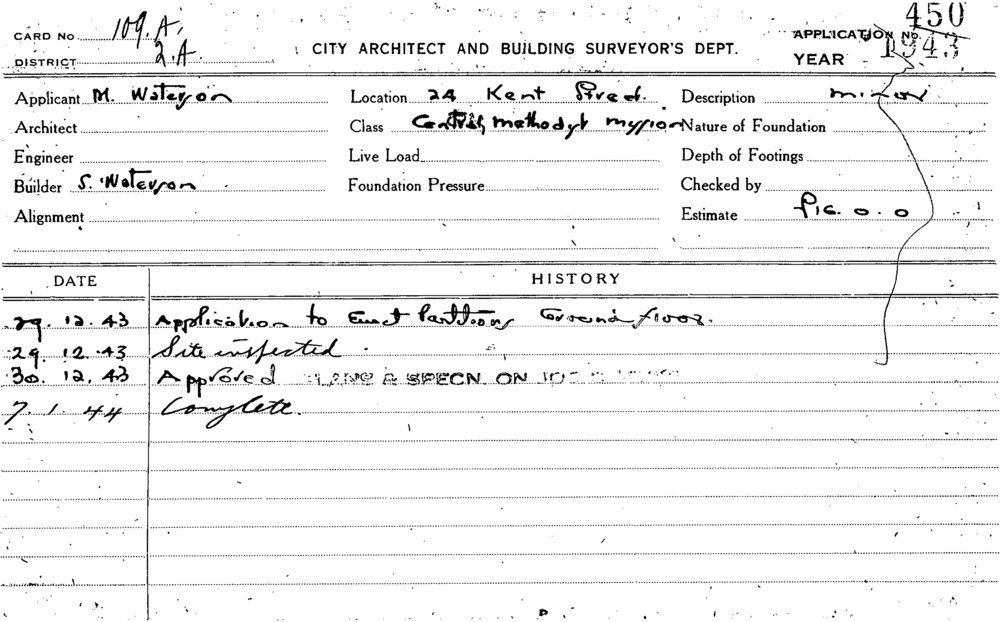 CARD No 109.A.
DISTRICT 2.A
CITY ARCHITECT AND BUILDING SURVEYOR'S DEPT.
APPLICATION No. 450
YEAR 1943
Applicant M. Waterson Location 24 Kent Street. Description minor
Architect Class Central methodyst myssion Nature of Foundation
Engineer Live Load Depth of Footings
Builder S. Waterson Foundation Pressure Checked by
Alignment Estimate 0.0
DATE HISTORY
29. 12. 43 Application to Erect Partitions Ground floor.
29. 12. 43 Site inspected.
30. 12. 43 Approved PLANS & SPECN ON
7. 1. 44 Complete.